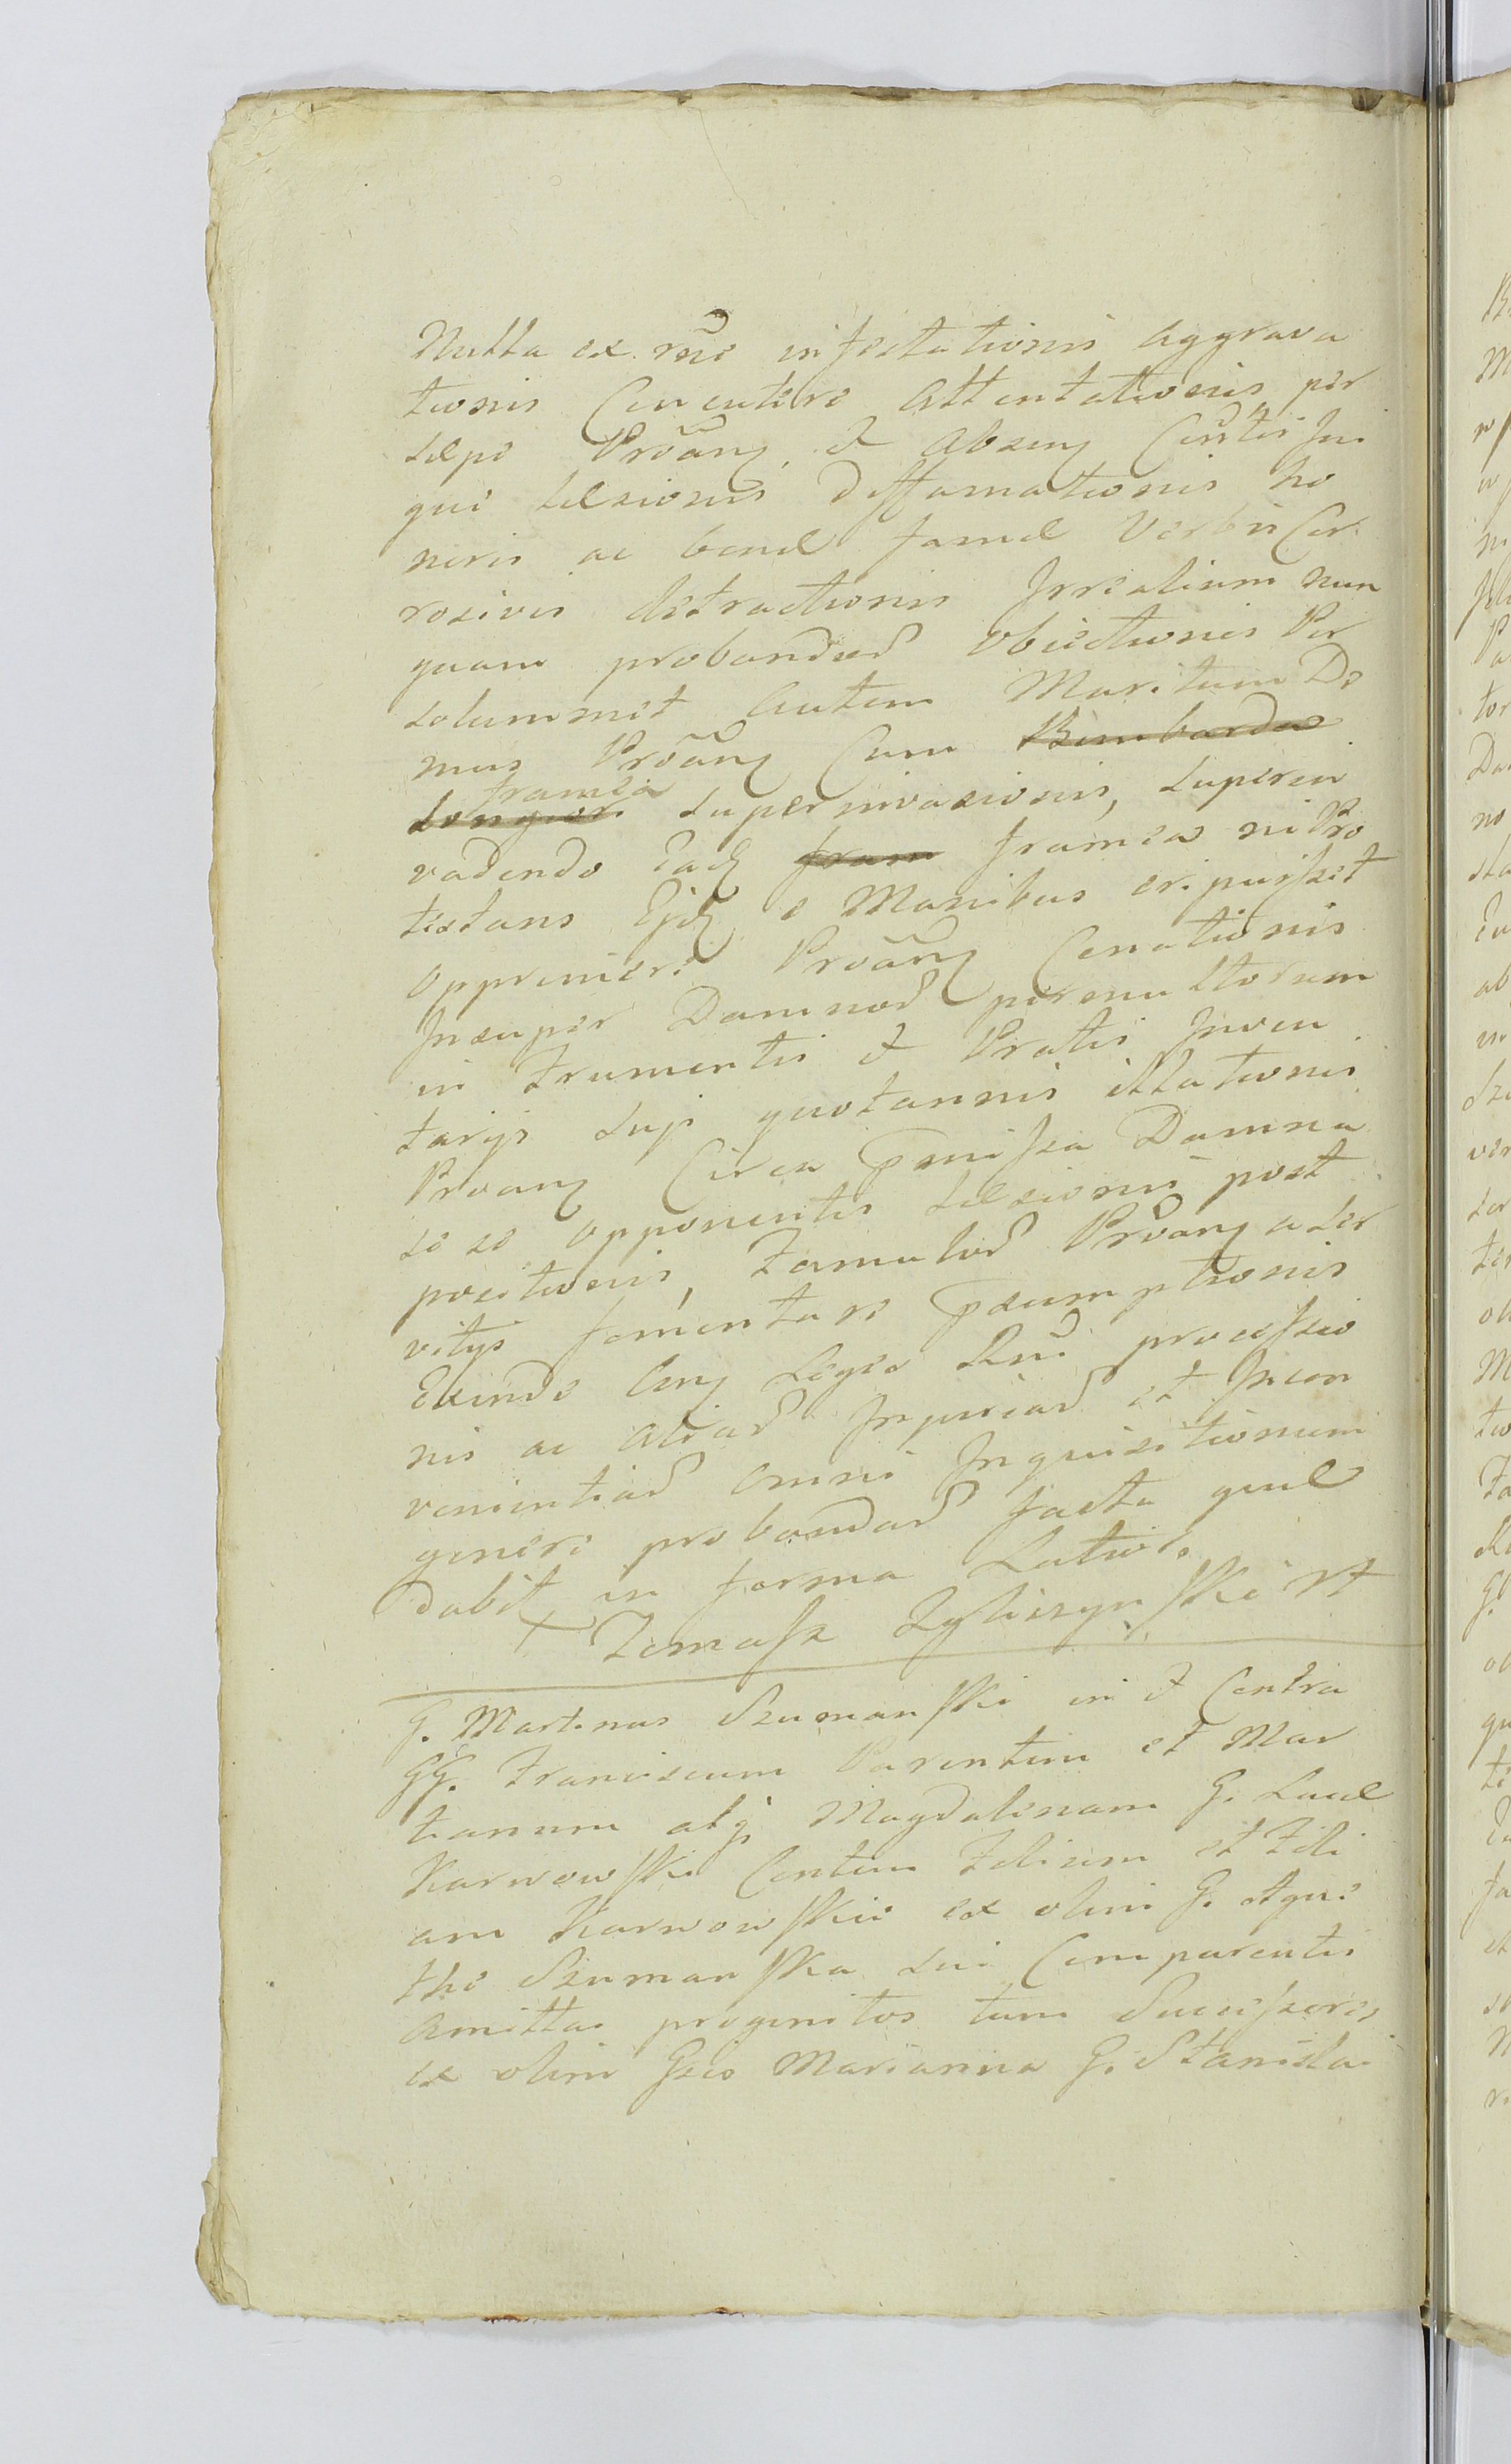 Nulla ex rñe infestationis Aggrava
tionis Concutere Attentationis per
saepe Prõang et Absenq Cũntis Ju
que laesionis diffamationis ho
noris ac bonae famae Verbis Cor
rosivis detractionis Irrealium nun
quam proband obiectionis Per
solummet autem Maritum Do
mus Prõang Cum Bombarda
Longiori framea superinvasionis, superin
vadendo Eadq fram framea ni Pro
testans Ejdq e Manibus eripuisset
opprimere Prõang Conationis
Insuper Damnod permultorum
in Frumentis et Pratis Inven
tarijs suis quotannis illationis
Proang Circa pmissa Damna
se se opponentis laesionis post
positionis, Famulod Prõang a ser
vitys fomentare psumptionis
Exinde Anq Legea Rnĩ processio
nis ac aliad Injuriad et Incon
venientiad omni Inquisitionum
genere probandad facta quae
dabit in forma Latiori.
+ Tomasz Zgliczynski
G. Martinus Szumanski in et Contra
GG. Franciscum Parentem et Mar
tianum atq Magdalenam G. Lucae
Karwowski Contem Filium et Fili
am Karwowskie ex olim G. Aga
tha Szumanska sui Comparentis
Amitta progenitos tum Successores
ex olim Gsa Marianna G. Stanislai